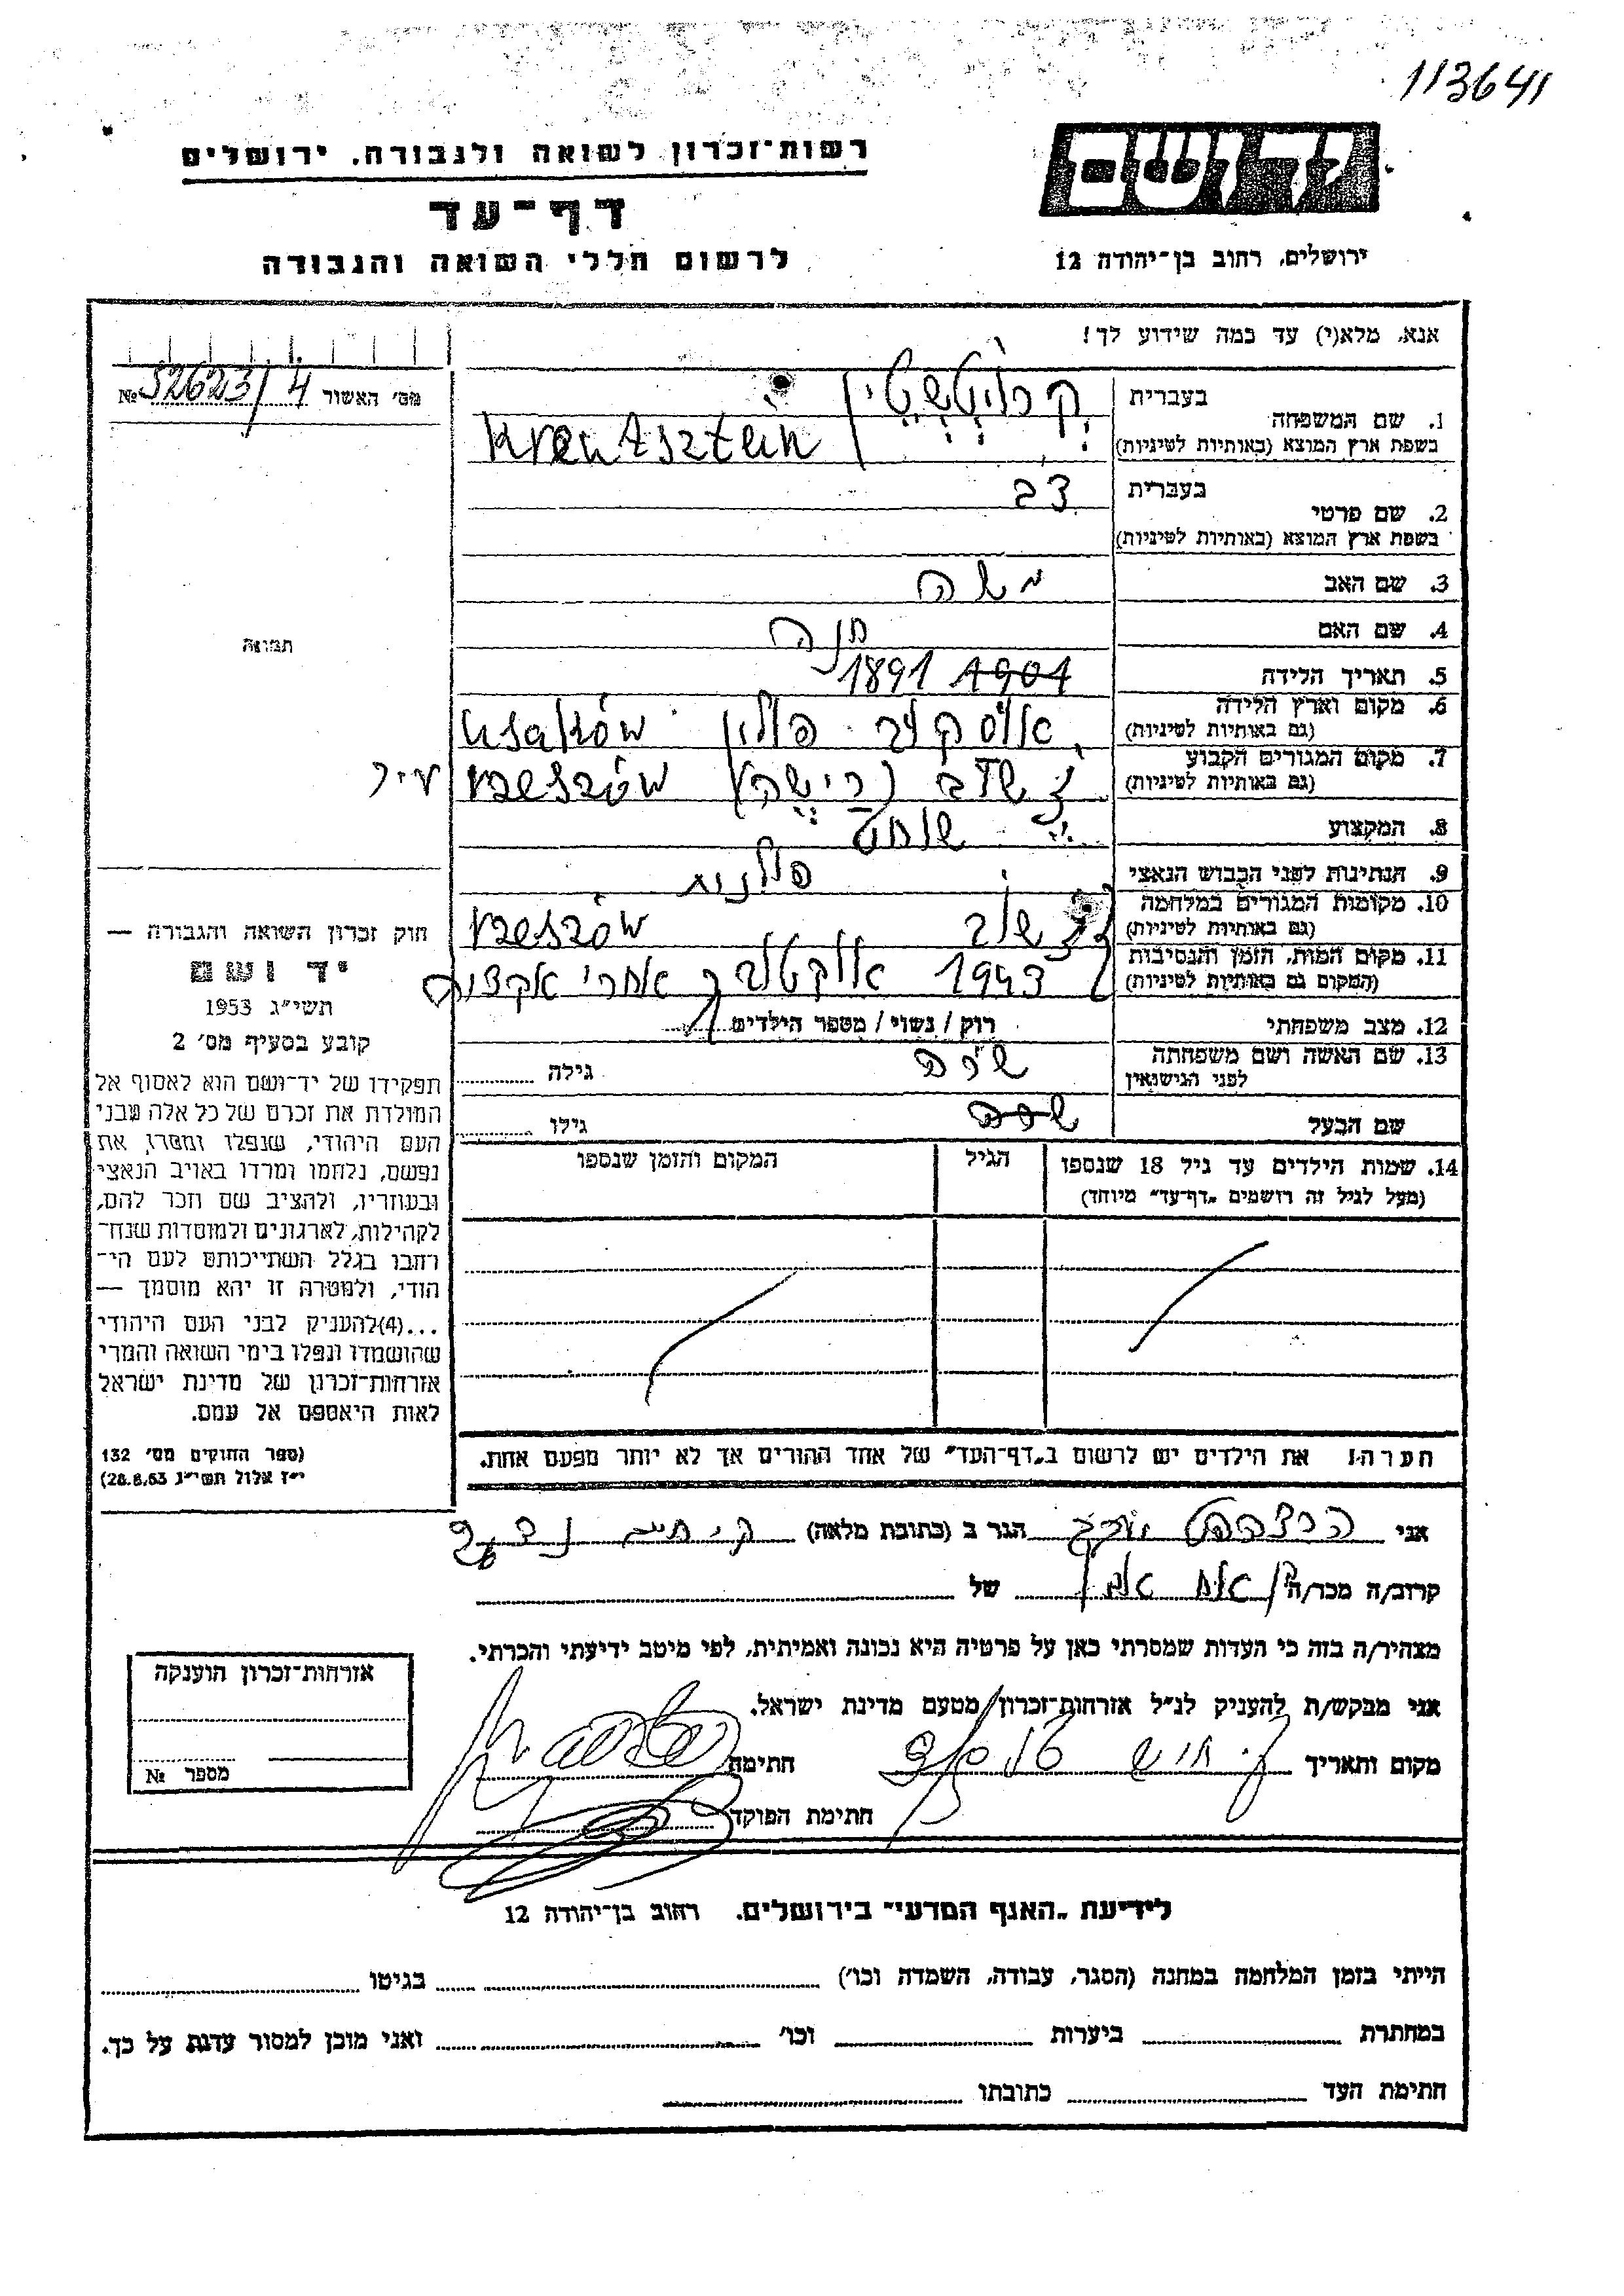 113641
רשות־זכרון לשואה ולגבורה, ירושלים
יד ושם
דף־עד
לרשום חללי השואה והגבורה
ירושלים, רחוב בן־יהודה 12
אנא, מלא(י) עד כמה שידוע לך!
מס׳ האשור № 52623/4
1. שם המשפחה
בעברית
בשפת ארץ המוצא (באותיות לטיניות)
2. שם פרטי
בעברית דב
בשפת ארץ המוצא (באותיות לטיניות)
3. שם האב משה
4. שם האם חנה
5. תאריך הלידה 1904 1891
6. מקום וארץ הלידה
(גם באותיות לטיניות)
פולין
7. מקום המגורים הקבוע
(גם באותיות לטיניות)
8. המקצוע שוחט
9. הנתינות לפני הכבוש הנאצי פולנית
10. מקומות המגורים במלחמה
(גם באותיות לטיניות)
11. מקום המות, הזמן והנסיבות
(המקום גם באותיות לטיניות)
1943 אוקטובר אחרי אקציה
12. מצב משפחתי רוק / נשוי / מספר הילדים
13. שם האשה ושם משפחתה
לפני הנישואין
שרה גילה
שם הבעל שרה גילו
14. שמות הילדים עד גיל 18 שנספו
(מעל לגיל זה רושמים „דף־עד״ מיוחד)
הגיל
המקום והזמן שנספו
הערה! את הילדים יש לרשום ב„דף־העד״ של אחד ההורים אך לא יותר מפעם אחת.
תמונה
חוק זכרון השואה והגבורה —
יד ושם
תשי״ג 1953
קובע בסעיף מס׳ 2
תפקידו של יד־ושם הוא לאסוף אל
המולדת את זכרם של כל אלה מבני
העם היהודי, שנפלו ומסרו את
נפשם, נלחמו ומרדו באויב הנאצי
ובעוזריו, ולהציב שם וזכר להם,
לקהילות, לארגונים ולמוסדות שנח־
רבו בגלל השתייכותם לעם הי־
הודי, ולמטרה זו יהא מוסמך —
...(4)להעניק לבני העם היהודי
שהושמדו ונפלו בימי השואה והמרי
אזרחות־זכרון של מדינת ישראל
לאות היאספם אל עמם.
(ספר החוקים מס׳ 132
י״ז אלול תשי״ג 28.8.53)
אני הגר ב (כתובת מלאה)
קרוב/ה מכר/ה של
מצהיר/ה בזה כי העדות שמסרתי כאן על פרטיה היא נכונה ואמיתית, לפי מיטב ידיעתי והכרתי.
אני מבקש/ת להעניק לנ״ל אזרחות־זכרון מטעם מדינת ישראל.
מקום ותאריך חתימה
חתימת הפוקד
אזרחות־זכרון הוענקה
מספר №
לידיעת „האגף המדעי״ בירושלים. רחוב בן־יהודה 12
הייתי בזמן המלחמה במחנה (הסגר, עבודה, השמדה וכו׳) בגיטו
במחתרת ביערות וכו׳ ואני מוכן למסור עדות על כך.
חתימת העד כתובתו